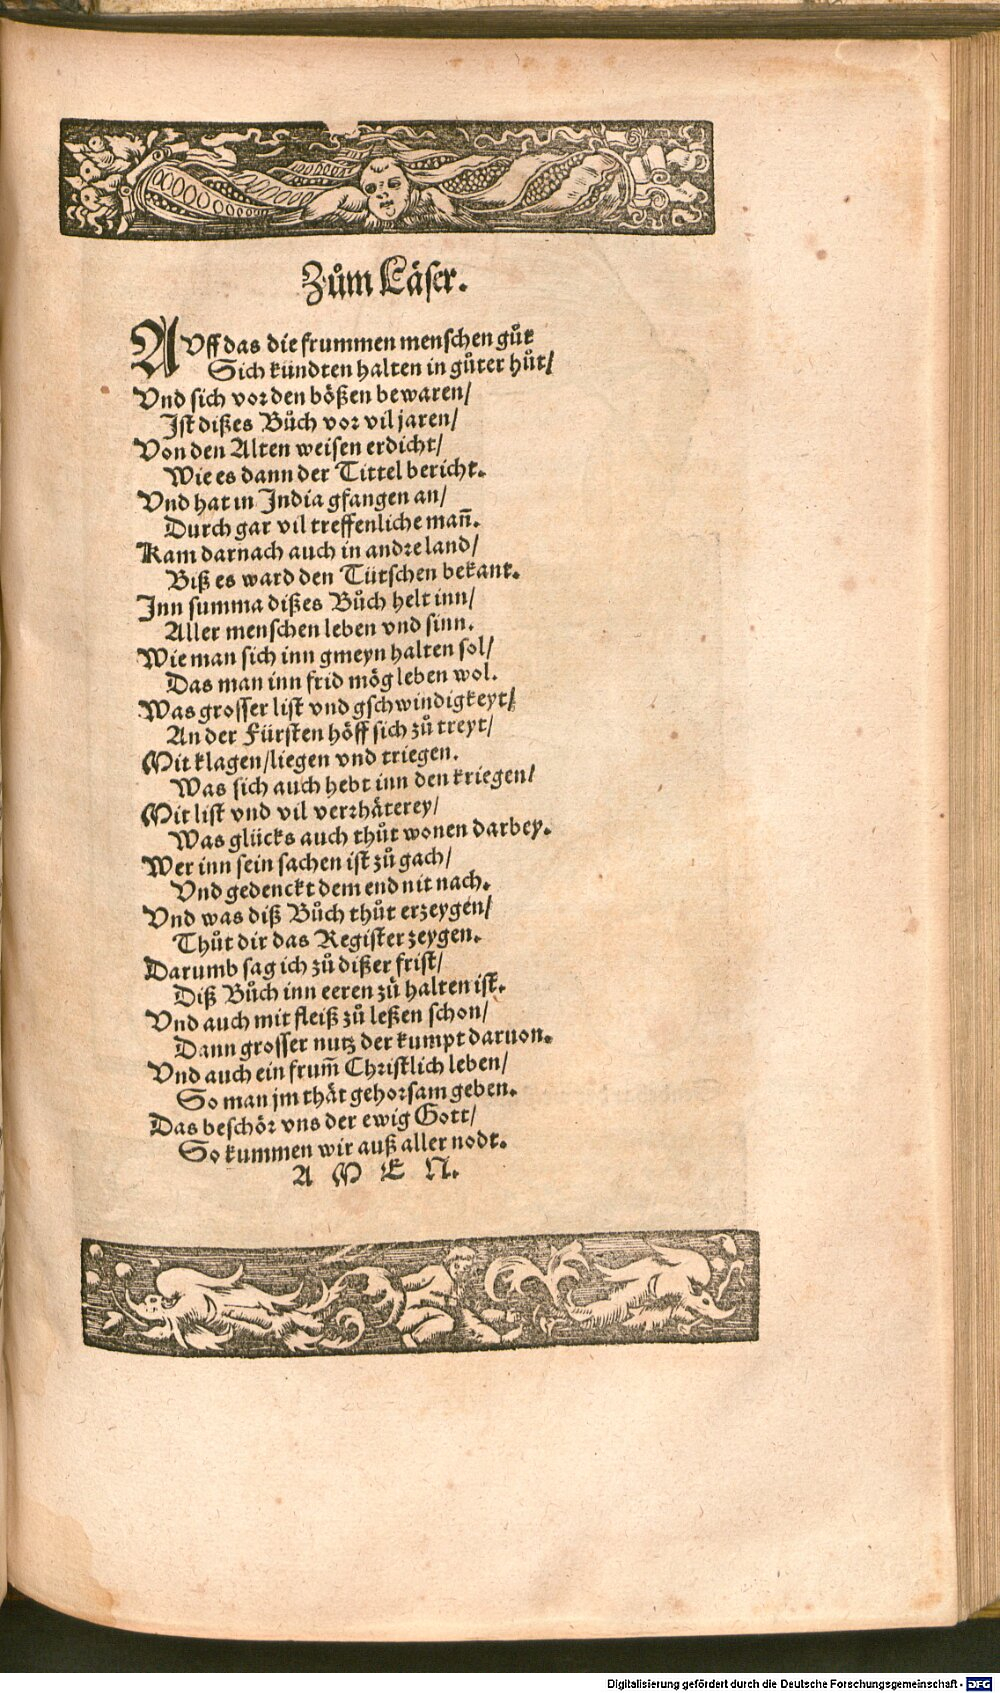 Zům Läser.
AVff das die frummen menschen gůt
Sich kündten halten in gůter hůt/
Vnd sich vor den bößen bewaren/
Ist dißes Bůch vor vil jaren/
Von den Alten weisen erdicht/
Wie es dann der Tittel bericht.
Vnd hat in India gfangen an/
Durch gar vil treffenliche mañ.
Kam darnach auch in andre land/
Biß es ward den Tütschen bekant.
Inn summa dißes Bůch helt inn/
Aller menschen leben vnd sinn.
Wie man sich inn gmeyn halten sol/
Das man inn frid mög leben wol.
Was grosser list vnd gschwindigkeyt/
An der Fürsten höff sich zů treyt/
Mit klagen/liegen vnd triegen.
Was sich auch hebt inn den kriegen/
Mit list vnd vil verrhäterey/
Was glücks auch thůt wonen darbey.
Wer inn sein sachen ist zů gach/
Vnd gedenckt dem end nit nach.
Vnd was diß Bůch thůt erzeygen/
Thůt dir das Register zeygen.
Darumb sag ich zů dißer frist/
Diß Bůch inn eeren zů halten ist.
Vnd auch mit fleiß zů leßen schon/
Dann grosser nutz der kumpt daruon.
Vnd auch ein frum̃ Christlich leben/
So man jm thät gehorsam geben.
Das beschör vns der ewig Gott/
So kummen wir auß aller nodt.
A M E N.
Digitalisierung gefördert durch die Deutsche Forschungsgemeinschaft - DFG